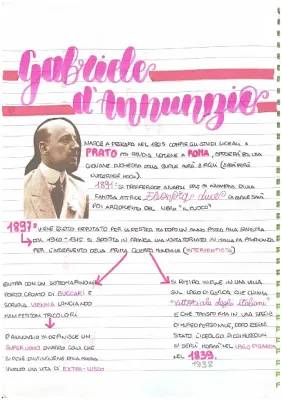 Gabriele
d'Annunzio
NASCE A PESCARA NEL COMPIE GLI STUDI LICEALI A
PRATO MA DIVISA VERRÀ A ROMA, SPOSERÀ POI UNA
GIOVANE DUCHESSA DALLA QUALE AVRÀ 3 FIGLI
1891: SI TRASFERISCE A NAPOLI
FAMOSA ATTRICE Eleonora duse
POI ARGOMENTO DEL LIBRO "IL FUOCO"
1897: VIENE ELETTO DEPUTATO PER LA DESTRA MA DOPO UN ANNO PASSA ALLA SINISTRA
DAL 1910-1915 SI SPOSTA IN FRANCIA UNA VOLTA TORNATO IN ITALIA
PER L'INTERVENTO DELLA PRIMA GUERRA MONDIALE (INTERVENTISTA)
ENTRA CON UN SOTTOMARINO NEL
PORTO CROATO DI BUCCARI E
SORVOLA VIENNA LANCIANDO
MANIFESTINI TRICOLORI
D'ANNUNZIO SI DEFINISCE UN
SUPERUOMO DIVERSO
SI PUÒ DISTINGUERE DALLA MASSA
VIVENDO UNA VITA DI EXTRA-LUSSO
SI RITIRÒ INOLTRE IN UNA VILLA
SUL LAGO DI GARDA CHE CHIAMA
"Vittoriale degli Italiani"
E CHE TRASFORMA IN UNA SPECIE
DI MUSEO PERSONALE, DOPO ESSERE
STATO
NEL LAGO DI GARDA
NEL 1839.
1938